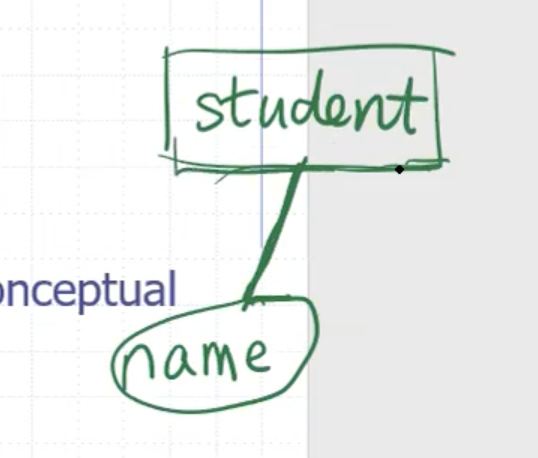 student
onceptual
name